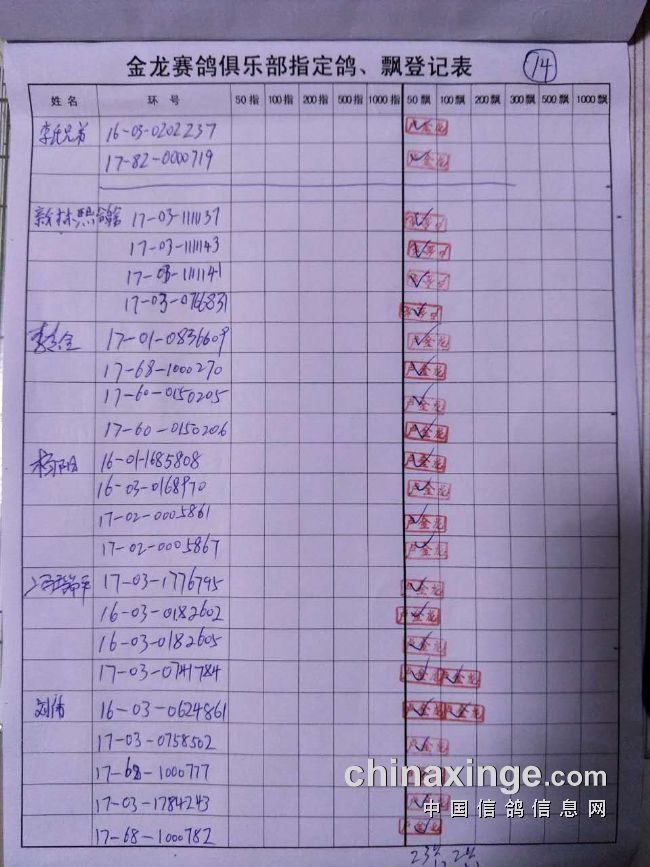 金龙赛鸽俱乐部指定鸽、飘登记表
14
姓名 环号 50指 100指 200指 500指 1000指 50飘 100飘 200飘 300飘 500飘 1000飘
李氏兄弟 16-03-0202237
17-82-0000719
17-03-111137
17-03-111143
17-03-111141
17-03-0766831
17-01-0836609
17-68-1000270
17-60-0150205
17-60-0150206
杨阳 16-01-1685808
16-03-0168970
17-02-0005861
17-02-0005867
17-03-1776795
16-03-0182602
16-03-0182605
17-03-0741784
刘伟 16-03-0624861
17-03-0758502
17-68-1000777
17-03-1784243
17-68-1000782
chinaxinge.com
中国信鸽信息网